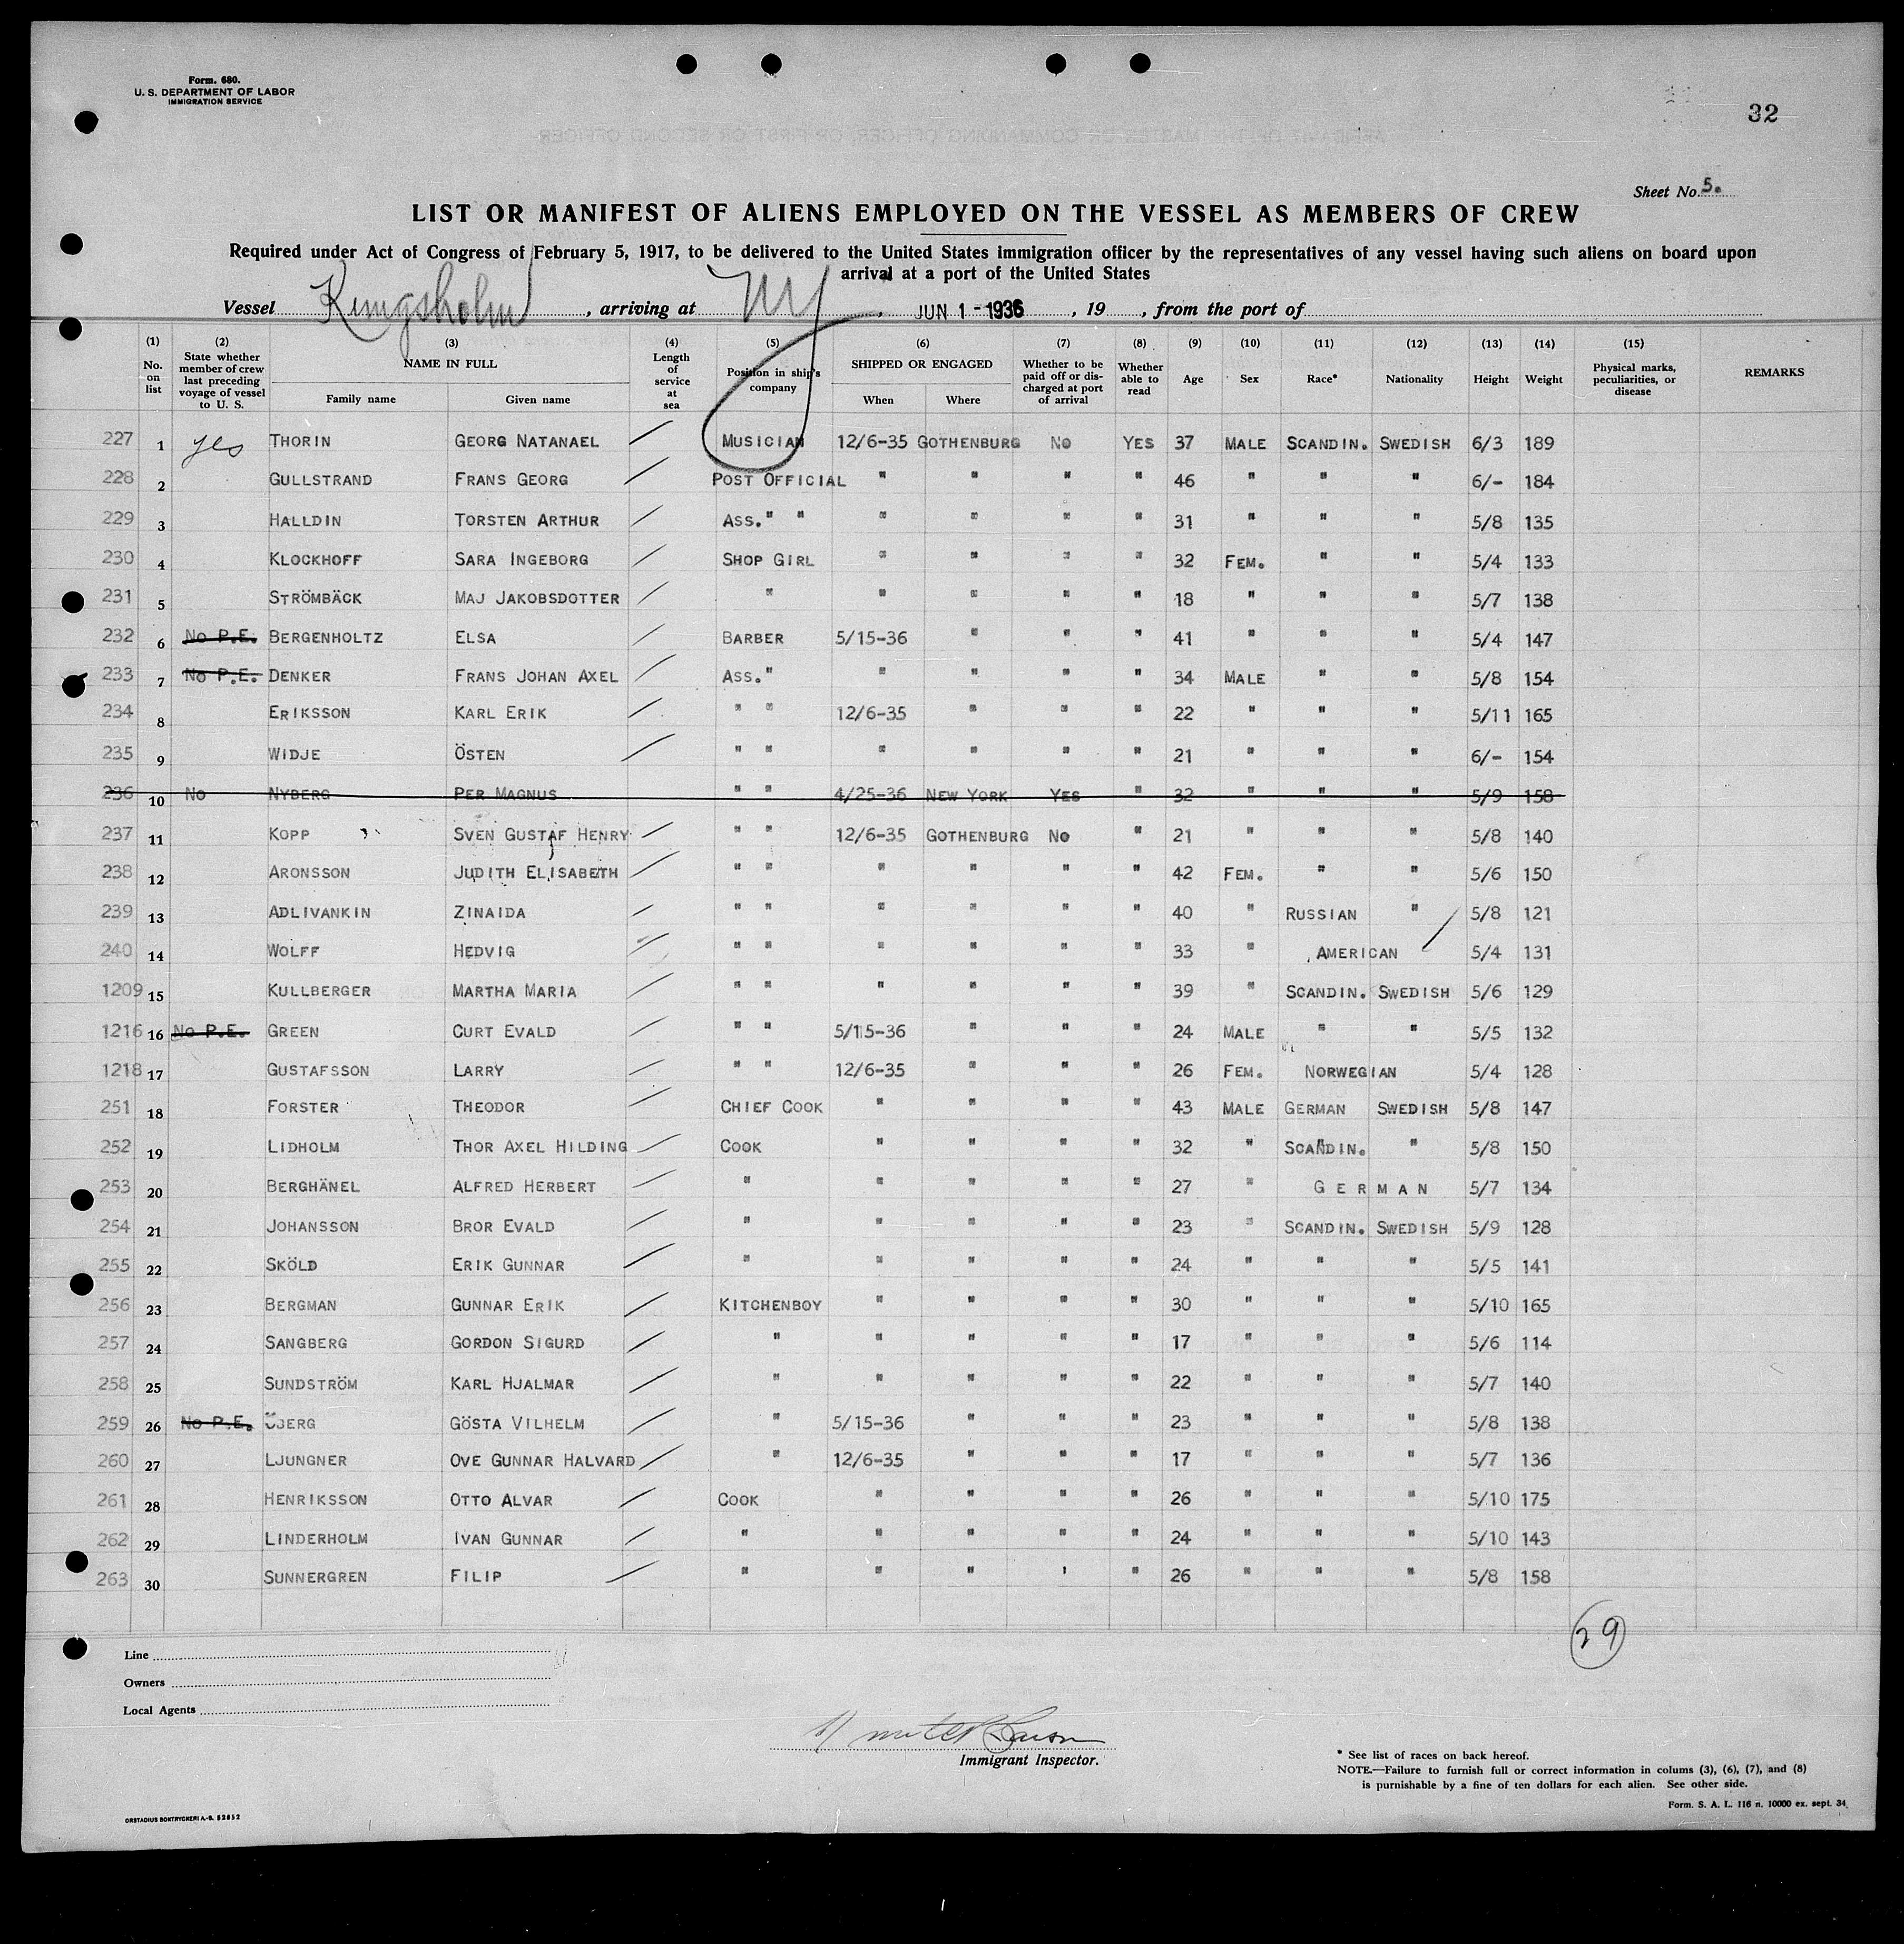 Form. 680.
U. S. DEPARTMENT OF LABOR
IMMIGRATION SERVICE
32
Sheet No. 5.
LIST OR MANIFEST OF ALIENS EMPLOYED ON THE VESSEL AS MEMBERS OF CREW
Required under Act of Congress of February 5, 1917, to be delivered to the United States immigration officer by the representatives of any vessel having such aliens on board upon
arrival at a port of the United States
Vessel Kungsholm, arriving at NY, JUN 1 - 1936, 19 , from the port of
(1) No. on list (2) State whether member of crew last preceding voyage of vessel to U. S. (3) NAME IN FULL Family name Given name (4) Length of service at sea (5) Position in ship's company (6) SHIPPED OR ENGAGED When Where (7) Whether to be paid off or discharged at port of arrival (8) Whether able to read (9) Age (10) Sex (11) Race* (12) Nationality (13) Height (14) Weight (15) Physical marks, peculiarities, or disease REMARKS
227 1 yes THORIN GEORG NATANAEL MUSICIAN 12/6-35 GOTHENBURG NO YES 37 MALE SCANDIN. SWEDISH 6/3 189
228 2 GULLSTRAND FRANS GEORG POST OFFICIAL " " " " 46 " " " 6/- 184
229 3 HALLDIN TORSTEN ARTHUR ASS." " " " " " 31 " " " 5/8 135
230 4 KLOCKHOFF SARA INGEBORG SHOP GIRL " " " " 32 FEM. " " 5/4 133
231 5 STRÖMBÄCK MAJ JAKOBSDOTTER " " " " " 18 " " " 5/7 138
232 6 NO P.E. BERGENHOLTZ ELSA BARBER 5/15-36 " " " 41 " " " 5/4 147
233 7 NO P.E. DENKER FRANS JOHAN AXEL ASS." " " " " 34 MALE " " 5/8 154
234 8 ERIKSSON KARL ERIK " " 12/6-35 " " " 22 " " " 5/11 165
235 9 WIDJE ÖSTEN " " " " " " 21 " " " 6/- 154
236 10 NO NYBERG PER MAGNUS " " 4/25-36 NEW YORK YES " 32 " " " 5/9 158
237 11 KOPP SVEN GUSTAF HENRY " " 12/6-35 GOTHENBURG NO " 21 " " " 5/8 140
238 12 ARONSSON JUDITH ELISABETH " " " " " " 42 FEM. " " 5/6 150
239 13 ADLIVANKIN ZINAIDA " " " " " " 40 " RUSSIAN " 5/8 121
240 14 WOLFF HEDVIG " " " " " " 33 " AMERICAN 5/4 131
1209 15 KULLBERGER MARTHA MARIA " " " " " " 39 " SCANDIN. SWEDISH 5/6 129
1216 16 NO P.E. GREEN CURT EVALD " " 5/15-36 " " " 24 MALE " " 5/5 132
1218 17 GUSTAFSSON LARRY " " 12/6-35 " " " 26 FEM. NORWEGIAN 5/4 128
251 18 FORSTER THEODOR CHIEF COOK " " " " 43 MALE GERMAN SWEDISH 5/8 147
252 19 LIDHOLM THOR AXEL HILDING COOK " " " " 32 " SCANDIN. " 5/8 150
253 20 BERGHÄNEL ALFRED HERBERT " " " " " 27 " GERMAN 5/7 134
254 21 JOHANSSON BROR EVALD " " " " " 23 " SCANDIN. SWEDISH 5/9 128
255 22 SKÖLD ERIK GUNNAR " " " " " 24 " " " 5/5 141
256 23 BERGMAN GUNNAR ERIK KITCHENBOY " " " " 30 " " " 5/10 165
257 24 SANGBERG GORDON SIGURD " " " " " 17 " " " 5/6 114
258 25 SUNDSTRÖM KARL HJALMAR " " " " " 22 " " " 5/7 140
259 26 NO P.E. ÖBERG GÖSTA VILHELM " 5/15-36 " " " 23 " " " 5/8 138
260 27 LJUNGNER OVE GUNNAR HALVARD " 12/6-35 " " " 17 " " " 5/7 136
261 28 HENRIKSSON OTTO ALVAR COOK " " " " 26 " " " 5/10 175
262 29 LINDERHOLM IVAN GUNNAR " " " " " 24 " " " 5/10 143
263 30 SUNNERGREN FILIP " " " ' " 26 " " " 5/8 158
29
Line
Owners
Local Agents
Immigrant Inspector.
* See list of races on back hereof.
NOTE.—Failure to furnish full or correct information in colums (3), (6), (7), and (8)
is punishable by a fine of ten dollars for each alien. See other side.
Form. S. A. L. 116 n. 10000 ex. sept. 34
ORSTADIUS BOKTRYCKERI A.-B. 52652